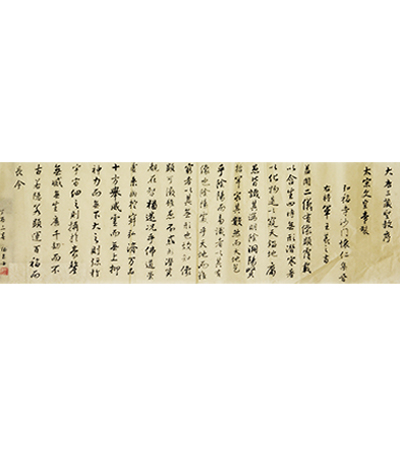 大唐三藏聖教序
太宗文皇帝製
弘福寺沙門懷仁集晉
右將軍王羲之書
蓋聞二儀有像顯覆載
以含生四時無形潛寒暑
以化物是以窺天鑑地庸
愚皆識其端明陰洞陽賢
哲罕窮其數然而天地苞
乎陰陽而易識者以其有
像也陰陽處乎天地而難
窮者以其無形也故知像
顯可徵雖愚不惑形潛莫
覩在智猶迷況乎佛道崇
虛乘幽控寂弘濟萬品
十方舉威靈而無上抑
神力而無下大之則彌於
宇宙細之則攝於毫釐
無滅無生歷千劫而不
古若隱若顯運百福而
長今